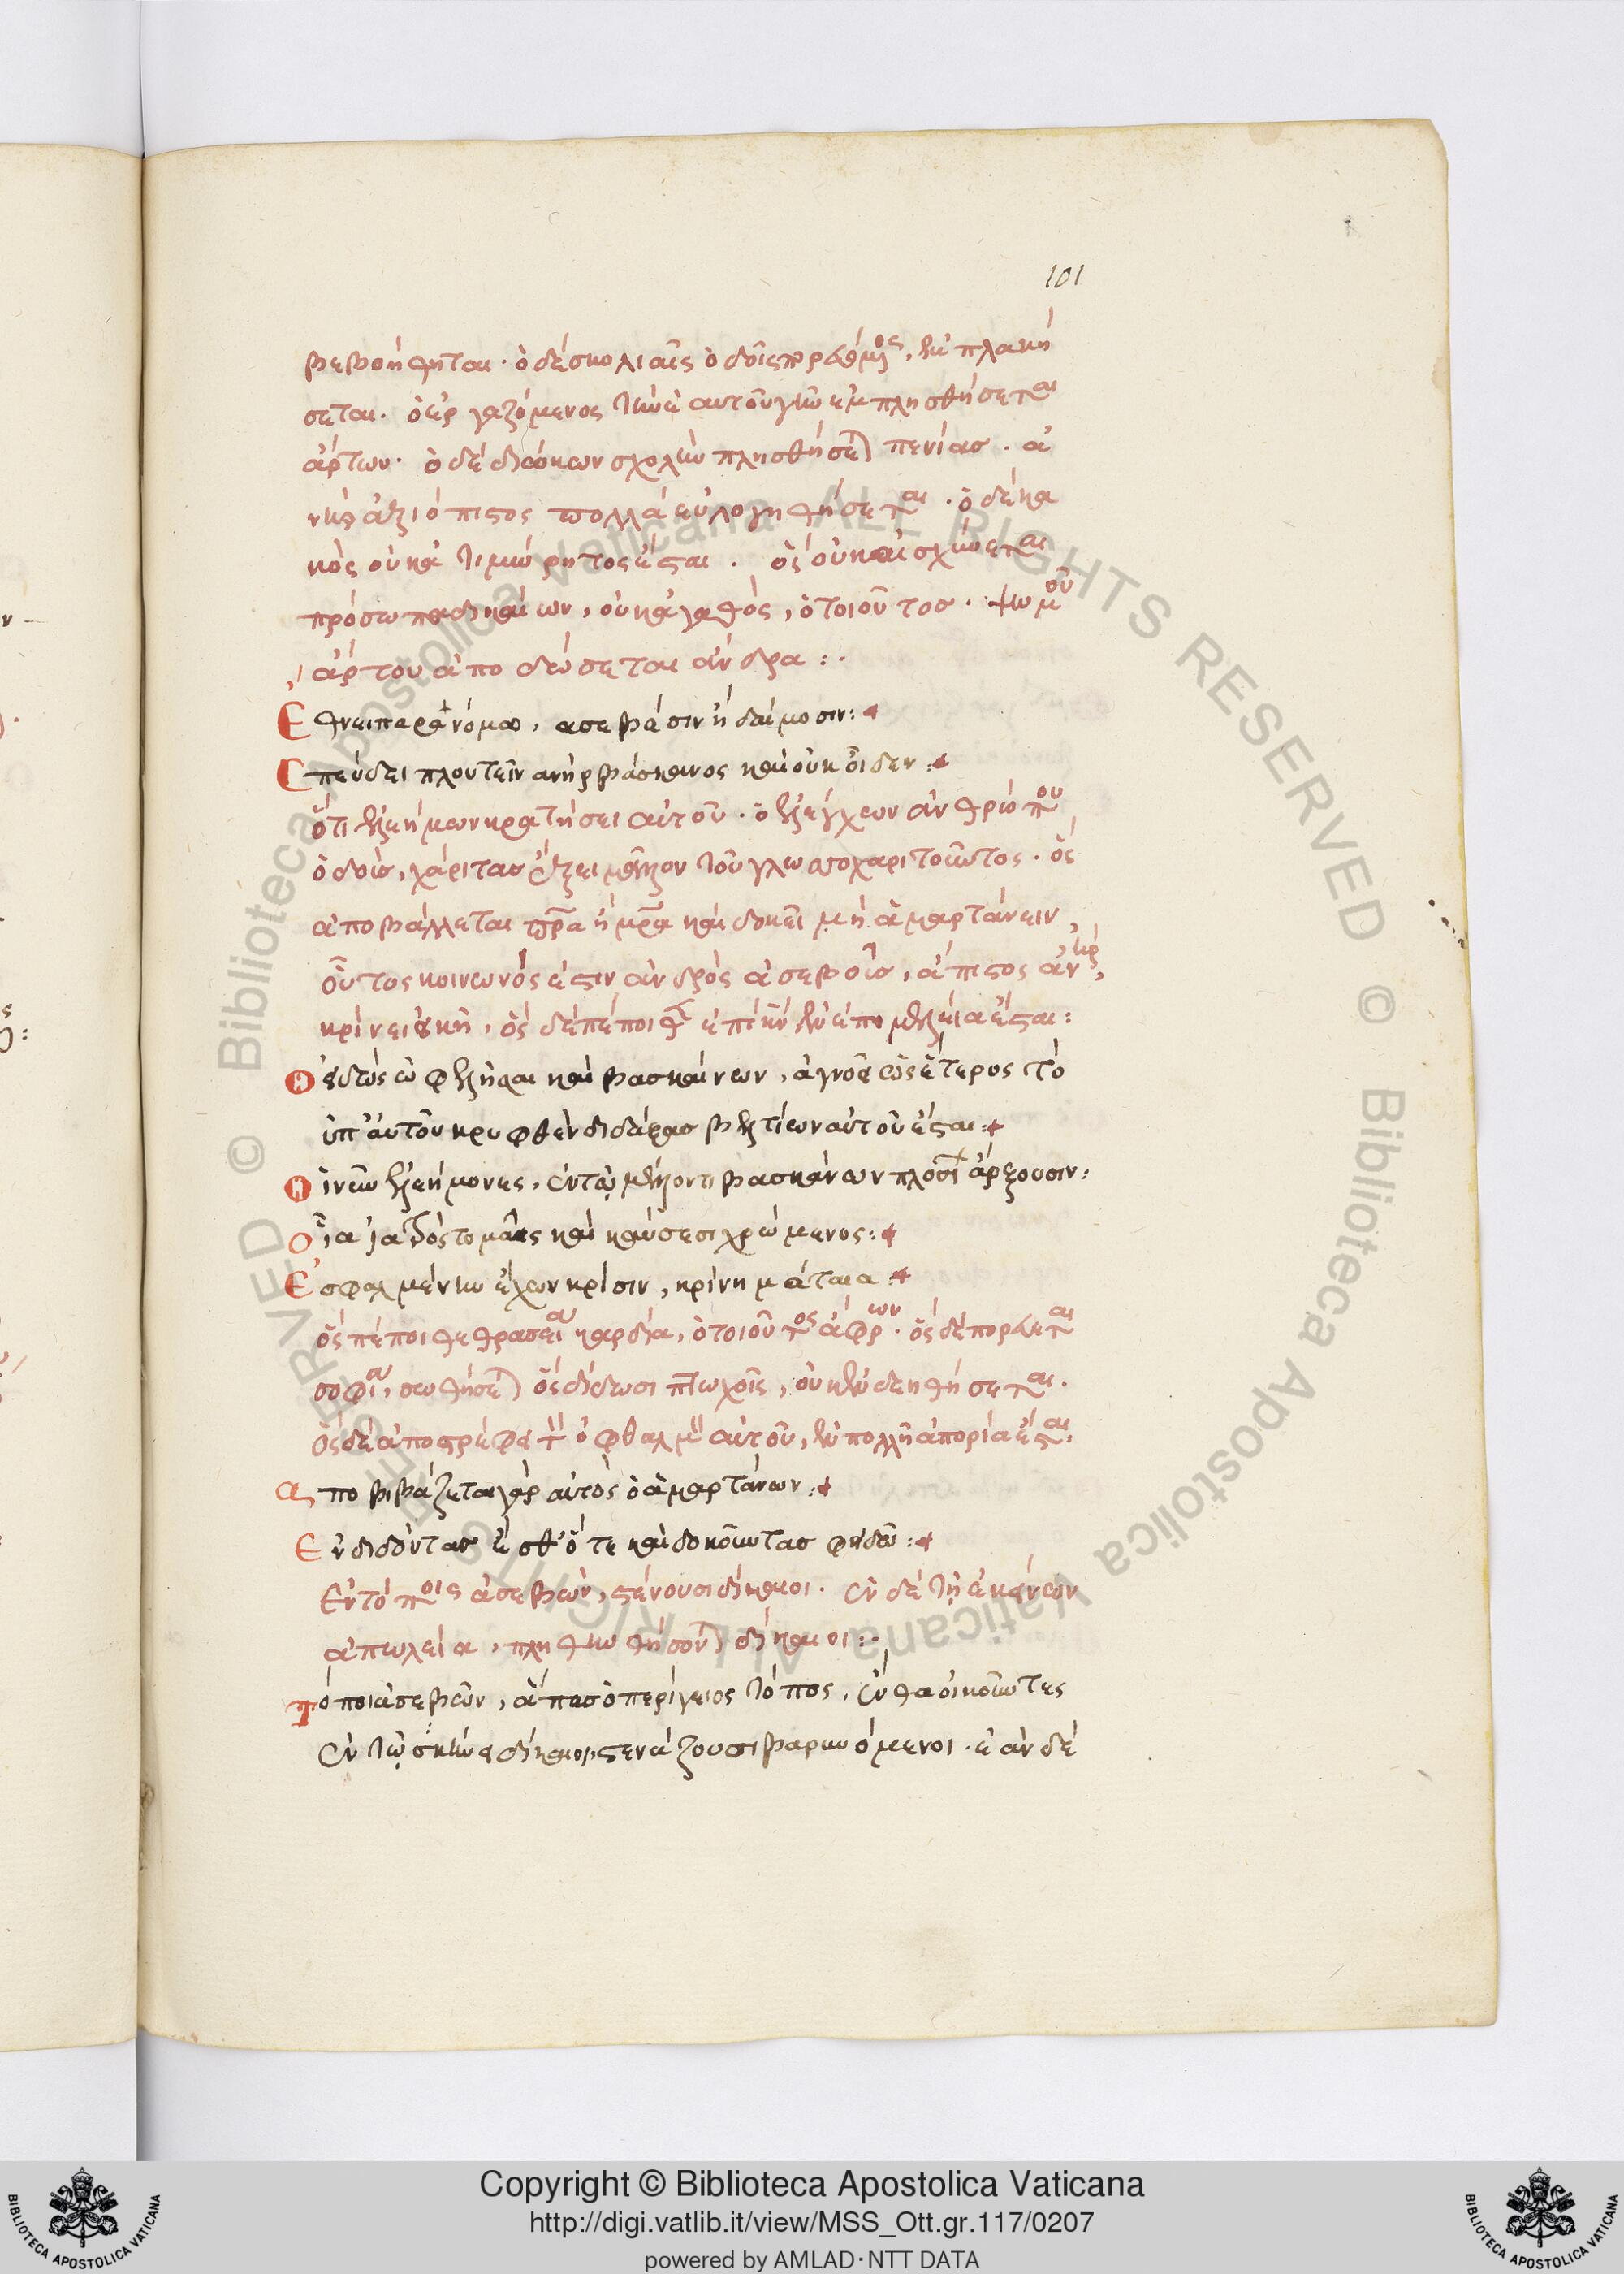 101
βεβοήθηται · ὁ δὲ σκολιαῖς ὁδοῖς πορευόμενος, ἐμπλακή
σεται · ὁ ἐργαζόμενος τὴν ἑαυτοῦ γῆν ἐμπλησθήσεται
ἄρτων · ὁ δὲ διώκων σχολὴν πλησθήσεται πενίας · ἀ
νὴρ ἀξιόπιστος πολλὰ εὐλογηθήσεται · ὁ δὲ κα
κὸς οὐκ ἀτιμώρητος ἔσται · ὃς οὐκ αἰσχύνεται
πρόσωπα δικαίων, οὐκ ἀγαθός, ὁ τοιοῦτος · ψωμοῦ
ἄρτου ἀποδώσεται ἄνδρα :·
Ἔθνει παρανόμω, ασεβέσιν ἢ δαίμοσιν :
Σπεύδει πλουτεῖν ανὴρ βάσκανος καὶ οὐκ οἶδεν :
ὅτι ἐλεήμων κρατήσει αὐτοῦ · ὁ ἐλέγχων ἀνθρώπου
ὁδοὺς, χάριτας ἕξει μᾶλλον τοῦ γλωσσοχαριτοῦντος · ὃς
ἀποβάλλεται πρα ἢ μρα καὶ δοκεῖ μὴ ἁμαρτάνειν,
οὗτος κοινωνός ἐστιν ἀνδρὸς ἀσεβοῦς, ἄπιστος ἀνὴρ,
κρίνει εἰκῆ, ὃς δὲ πέποιθεν ἐπὶ κν ἐν ἐπιμελεία ἔσται :
Ἡ εἰδὼς ὠφελῆσαι καὶ βασκαίνων, ἀγνοεῖ ὡς ἕτερος τὸ
ὑπ' αὐτοῦ κρυφθὲν διδάξας βελτίων αὐτοῦ ἔσται :
Ἡ ἐλεήμονες, ἐν τῶ μέλλοντι βασκάνων πλουσίων ἄρξουσιν :
Οἷα ἰατρὸς τομαῖς καὶ καύσεσι χρώμενος :
Ἐσφαλμένην ἔχων κρίσιν, κρίνη μάταια :
ὃς πέποιθε θρασεία καρδία, ὁ τοιοῦτος ἄφρων · ὃς δὲ πορεύεται
σοφία, σωθήσεται ὃς δίδωσι πτωχοῖς, οὐκ ἐνδεηθήσεται ·
Ὃς δὲ ἀποστρέφει τὸν ὀφθαλμὸν αὐτοῦ, ἐν πολλῆ ἀπορία ἔσται
Αποβιβάζεται γὰρ αὐτὸς ὁ ἁμαρτάνων :
Ἐνδιδόντας ἔσθ' ὅτε καὶ δοκοῦντας φείδου :
Ἐν τόποις ἀσεβῶν, στένουσι δίκαιοι · ἐν δὲ τῆ ἐκείνων
ἀπωλεία, πληθυνθήσονται δίκαιοι :·
Τόποι ἀσεβῶν, ἅπας ὁ περίγειος τόπος, ἔνθα οἰκοῦντες
ἐν τῶ σκήνει δίκαιοι, στενάζουσι βαρυνόμενοι · ἐὰν δὲ
Copyright © Biblioteca Apostolica Vaticana
http://digi.vatlib.it/view/MSS_Ott.gr.117/0207
powered by AMLAD·NTT DATA